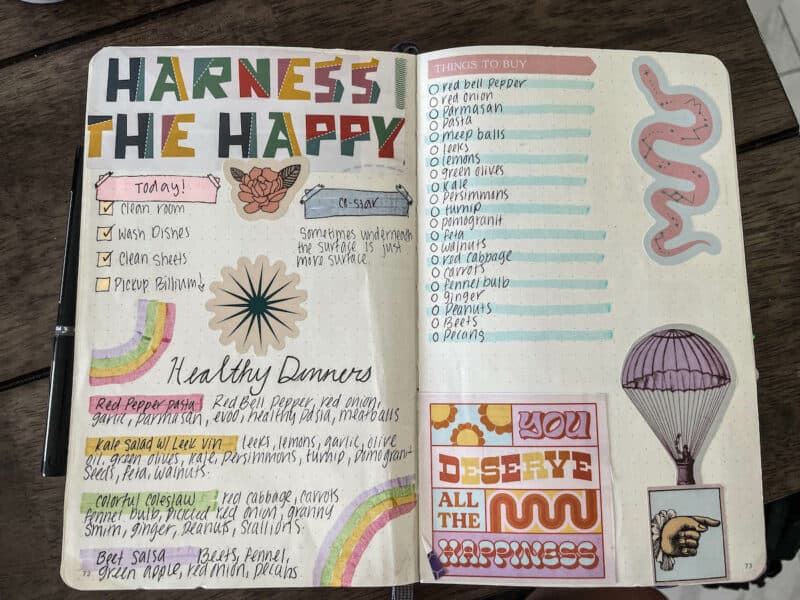 HARNESS
THE HAPPY
Today!
Clean room
Wash Dishes
Clean sheets
Pickup Billium
co-star
Sometimes underneath
the surface is just
more surface.
Healthy Dinners
Red Pepper pasta Red Bell Pepper, red onion,
garlic, parmasan, evoo, healthy pasta, meatballs
Kale Salad w/ Leek vin leeks, lemons, garlic, olive
oil, green olives, kale, persimmons, turnip, pomogranit
seeds, feta, walnuts.
Colorful coleslaw red cabbage, carrots
fennel bulb, pickled red onion, granny
smith, ginger, peanuts, scallions.
Beet salsa Beets, fennel,
green apple, red onion, pecans
72
THINGS TO BUY
red bell pepper
red onion
parmasan
pasta
meep balls
leeks
lemons
green olives
Kale
Persimmons
turnip
pomogranit
feta
walnuts
red cabbage
carrots
fennel bulb
ginger
Peanuts
Beets
Pecans
YOU
DESERVE
ALL
THE
HAPPINESS
73